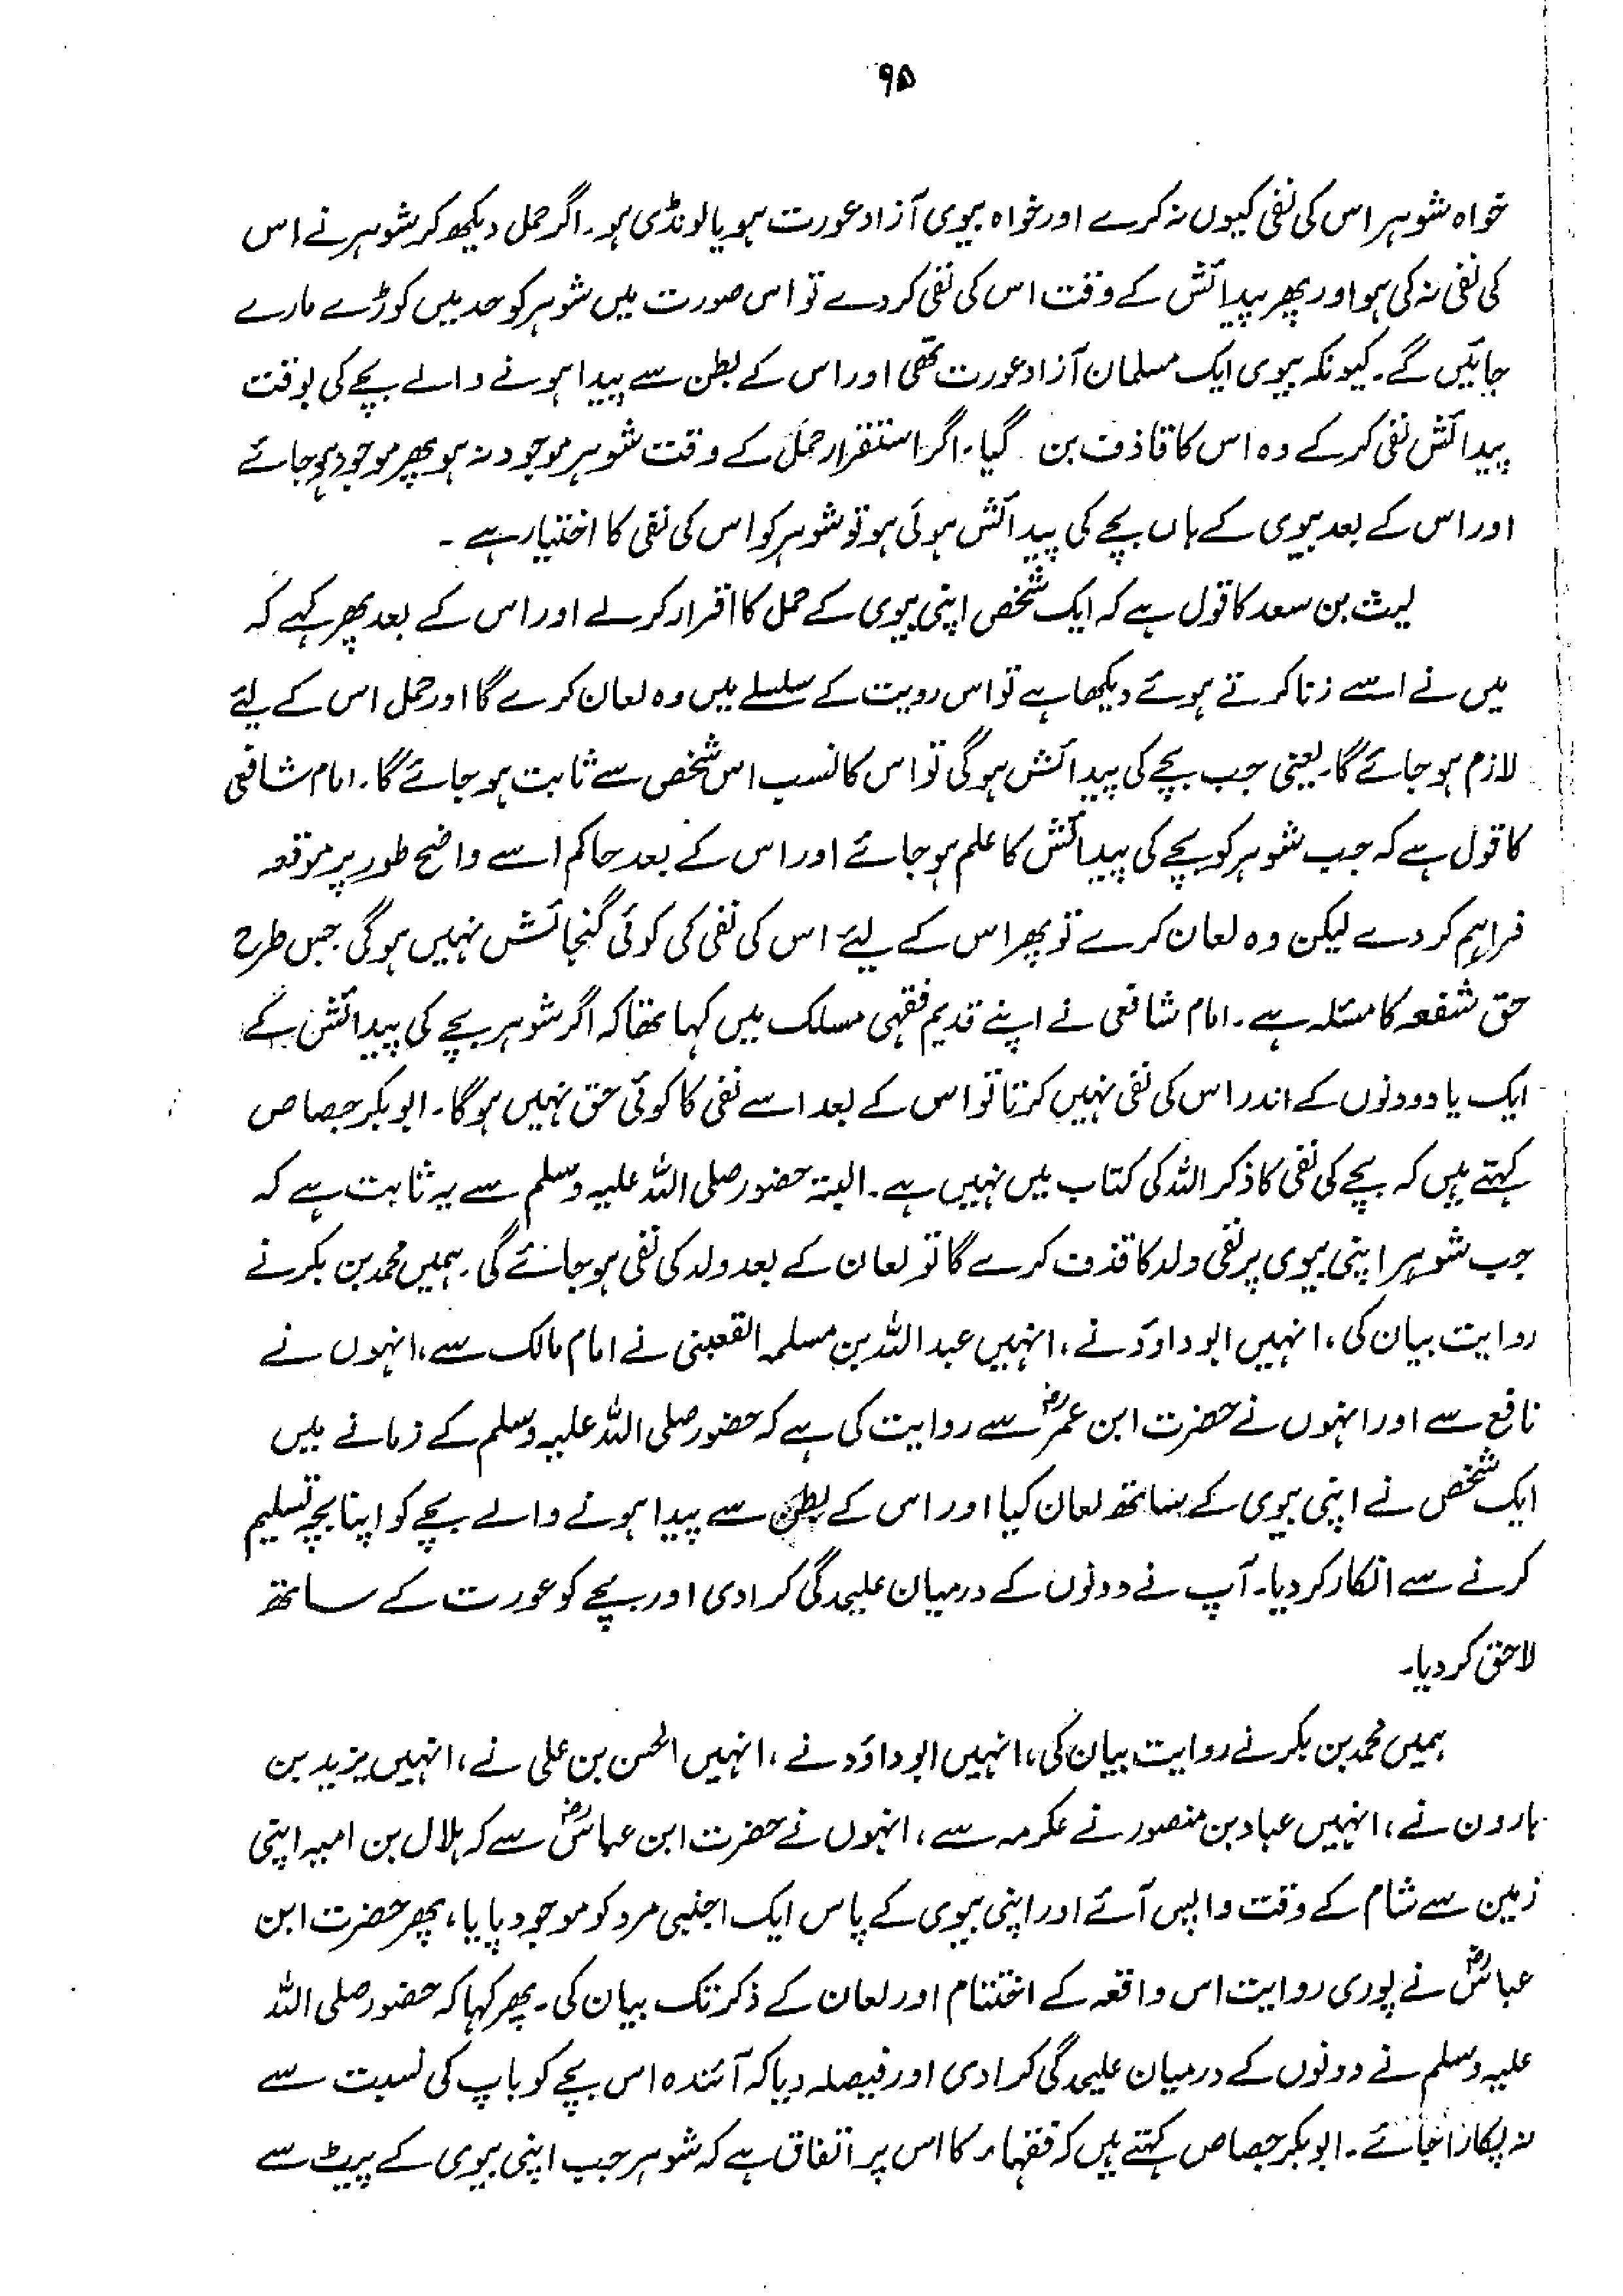 ۹۵
خواہ شوہر اس کی نفی کیوں نہ کرے اور خواہ بیوی آزاد عورت ہو یا لونڈی ہو۔ اگر حمل دیکھ کر شوہر نے اس
کی نفی نہ کی ہو اور پھر پیدائش کے وقت اس کی نفی کر دے تو اس صورت میں شوہر کو حد میں کوڑے مارے
جائیں گے۔ کیونکہ بیوی ایک مسلمان آزاد عورت تھی اور اس کے بطن سے پیدا ہونے والے بچے کی بوقت
پیدائش نفی کر کے وہ اس کا قاذف بن گیا۔ اگر استقرار حمل کے وقت شوہر موجود نہ ہو پھر موجود ہو جائے
اور اس کے بعد بیوی کے ہاں بچے کی پیدائش ہوئی ہو تو شوہر کو اس کی نفی کا اختیار ہے۔
لیث بن سعد کا قول ہے کہ ایک شخص اپنی بیوی کے حمل کا اقرار کر لے اور اس کے بعد پھر کہے کہ
میں نے اسے زنا کرتے ہوئے دیکھا ہے تو اس رویت کے سلسلے میں وہ لعان کرے گا اور حمل اس کے لیے
لازم ہو جائے گا۔ یعنی جب بچے کی پیدائش ہو گی تو اس کا نسب اس شخص سے ثابت ہو جائے گا۔ امام شافعی
کا قول ہے کہ جب شوہر کو بچے کی پیدائش کا علم ہو جائے اور اس کے بعد حاکم اسے واضح طور پر موقعہ
فراہم کر دے لیکن وہ لعان کرے تو پھر اس کے لیے اس کی نفی کی کوئی گنجائش نہیں ہو گی جس طرح
حق شفعہ کا مسئلہ ہے۔ امام شافعی نے اپنے قدیم فقہی مسلک میں کہا تھا کہ اگر شوہر بچے کی پیدائش کے
ایک یا دو دنوں کے اندر اس کی نفی نہیں کرتا تو اس کے بعد اسے نفی کا کوئی حق نہیں ہو گا۔ ابوبکر جصاص
کہتے ہیں کہ بچے کی نفی کا ذکر اللہ کی کتاب میں نہیں ہے۔ البتہ حضور صلی اللہ علیہ وسلم سے یہ ثابت ہے کہ
جب شوہر اپنی بیوی پر نفی ولد کا قذف کرے گا تو لعان کے بعد ولد کی نفی ہو جائے گی۔ ہمیں محمد بن بکر نے
روایت بیان کی، انہیں ابوداؤد نے، انہیں عبداللہ بن مسلمہ القعبنی نے امام مالک سے، انہوں نے
نافع سے اور انہوں نے حضرت ابن عمرؓ سے روایت کی ہے کہ حضور صلی اللہ علیہ وسلم کے زمانے میں
ایک شخص نے اپنی بیوی کے ساتھ لعان کیا اور اس کے بطن سے پیدا ہونے والے بچے کو اپنا بچہ تسلیم
کرنے سے انکار کر دیا۔ آپ نے دونوں کے درمیان علیحدگی کرا دی اور بچے کو عورت کے ساتھ
لاحق کر دیا۔
ہمیں محمد بن بکر نے روایت بیان کی، انہیں ابوداؤد نے، انہیں الحسن بن علی نے، انہیں یزید بن
ہارون نے، انہیں عباد بن منصور نے عکرمہ سے، انہوں نے حضرت ابن عباسؓ سے کہ ہلال بن امیہ اپنی
زمین سے شام کے وقت واپس آئے اور اپنی بیوی کے پاس ایک اجنبی مرد کو موجود پایا، پھر حضرت ابن
عباسؓ نے پوری روایت اس واقعہ کے اختتام اور لعان کے ذکر تک بیان کی۔ پھر کہا کہ حضور صلی اللہ
علیہ وسلم نے دونوں کے درمیان علیحدگی کرا دی اور فیصلہ دیا کہ آئندہ اس بچے کو باپ کی نسبت سے
نہ پکارا جائے۔ ابوبکر جصاص کہتے ہیں کہ فقہاء کا اس پر اتفاق ہے کہ شوہر جب اپنی بیوی کے پیٹ سے